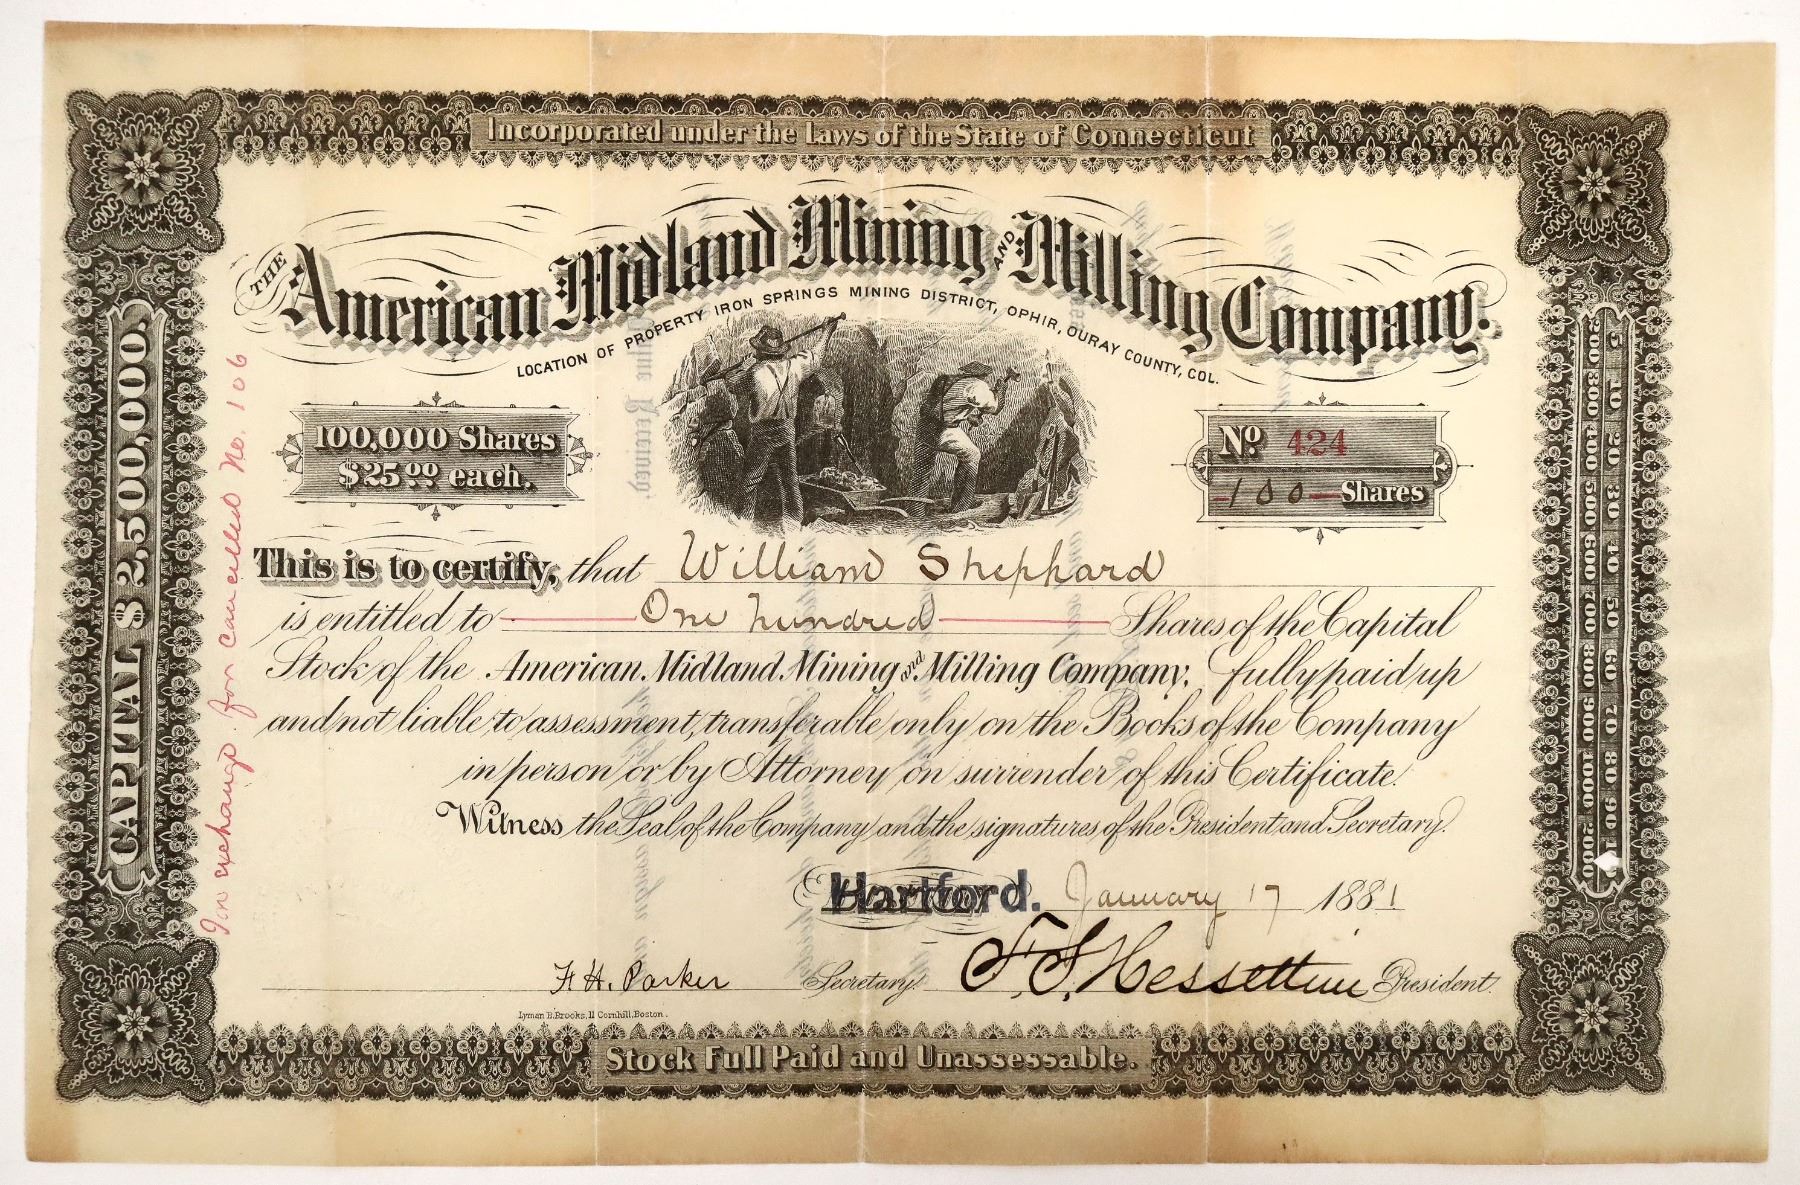 Incorporated under the Laws of the State of Connecticut
THE American Midland Mining AND Milling Company.
LOCATION OF PROPERTY IRON SPRINGS MINING DISTRICT, OPHIR, OURAY COUNTY, COL.
100,000 Shares
$25.00 each.
No. 424
100 Shares
This is to certify, that William Shephard
is entitled to One hundred Shares of the Capital
Stock of the American Midland Mining and Milling Company, fully paid up
and not liable to assessment, transferable only on the Books of the Company
in person or by Attorney on surrender of this Certificate.
Witness the Seal of the Company and the signatures of the President and Secretary.
Hartford. January 17 1881
F. H. Parker Secretary. President.
Lyman B. Brooks, 11 Cornhill, Boston.
Stock Full Paid and Unassessable.
CAPITAL $2,500,000.
In exchange for cancelled No. 106
5 10 20 30 40 50 60 70 80 90 100
200 300 400 500 600 700 800 900 1000 2000 5000